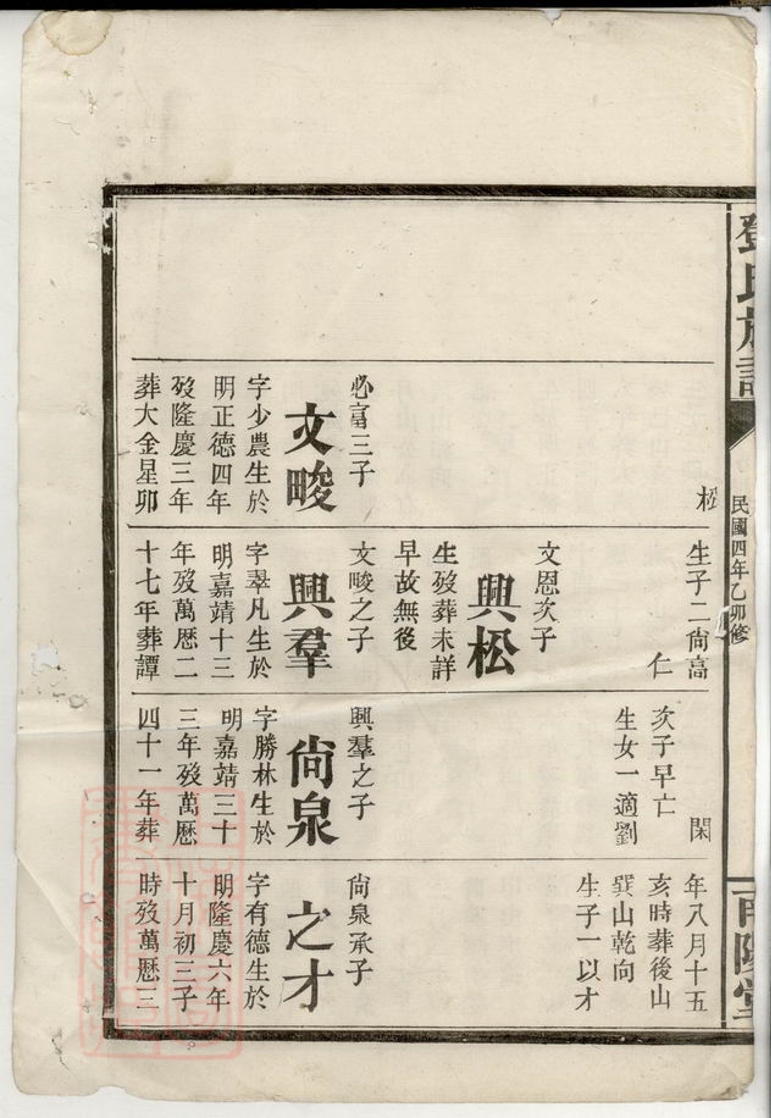 鄧氏族譜
民國四年乙卯修
南陽堂
松
必富三子
文畯
字少農生於
明正德四年
歿隆慶三年
葬大金星卯
生子二尙高
仁
文恩次子
興松
生歿葬未詳
早故無後
文畯之子
興羣
字翠凡生於
明嘉靖十三
年歿萬歷二
十七年葬譚
閑
次子早亡
生女一適劉
興羣之子
尙泉
字勝林生於
明嘉靖三十
三年歿萬歷
四十一年葬
年八月十五
亥時葬後山
巽山乾向
生子一以才
尙泉承子
之才
字有德生於
明隆慶六年
十月初三子
時歿萬歷三